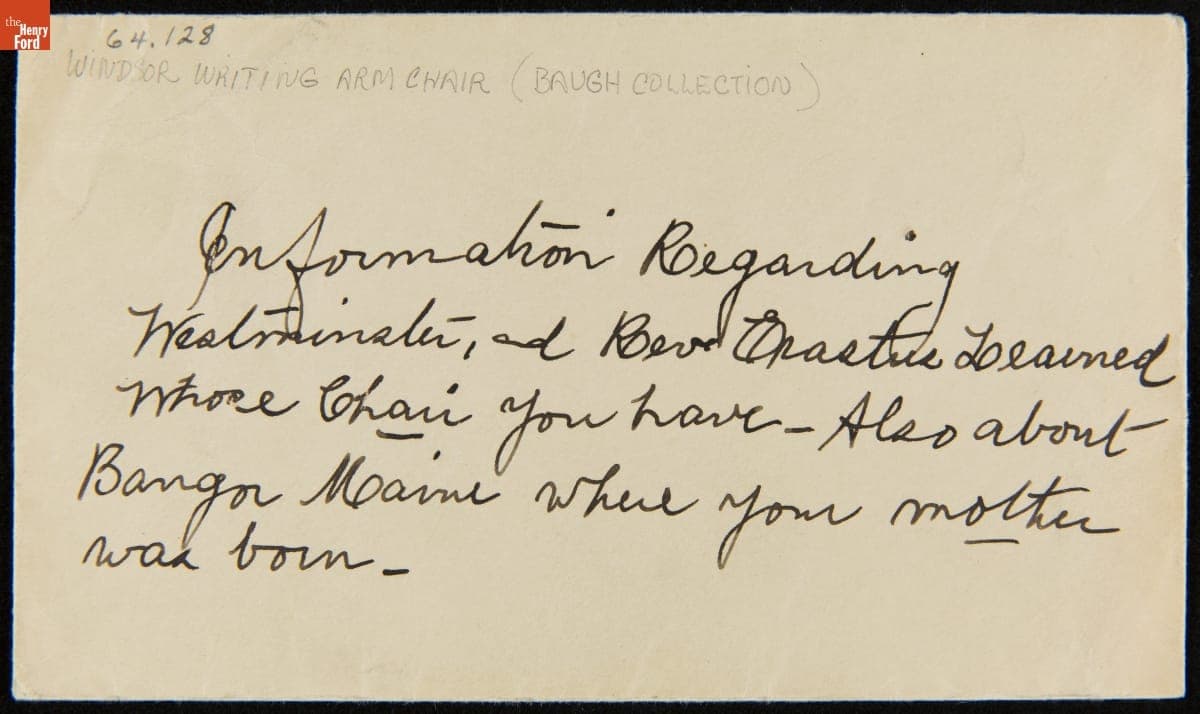 the
Henry
Ford
64.128
WINDSOR WRITING ARM CHAIR (BAUGH COLLECTION)
Information Regarding
Westminster, and Rev Erastus Learned
Whose Chair you have - Also about
Bangor Maine where your mother
was born -